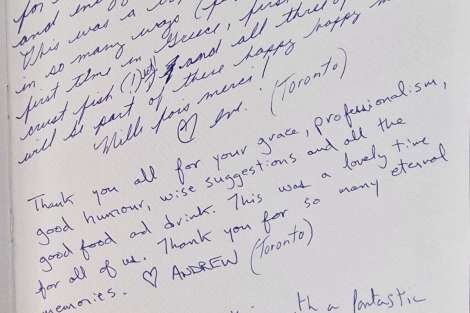 for
and
This was a
in so many ways
first time in Greece, first
cruet fish (!) and all three
will be part of these happy happy
Mille fois merci!
♡ Eve. (Toronto)
Thank you all for your grace, professionalism,
good humour, wise suggestions and all the
good food ad drink. This was a lovely time
for all of us. Thank you for so many eternal
memories. ♡ ANDREW (Toronto)
with a fantastic